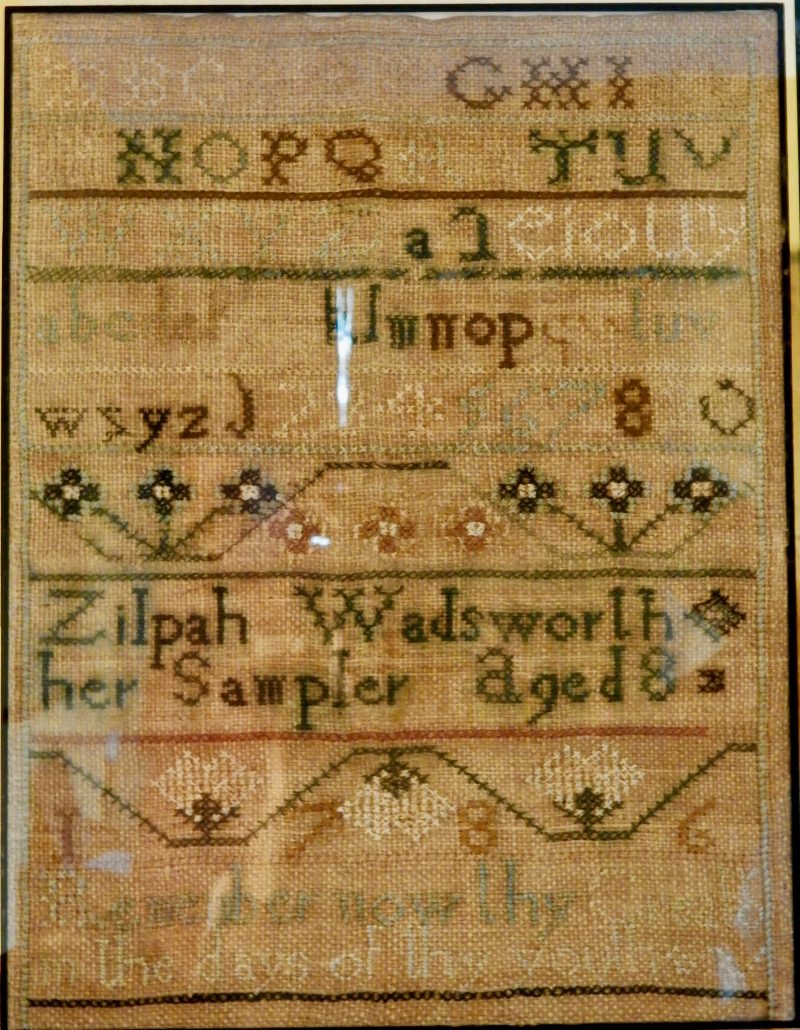 A B C G H I
N O P Q R T U V
W X Y Z a
a b c k l m n o p q t u v
w x y z 2 4 5 6 7 8 0
Zilpah Wadsworth
her Sampler aged 8
1 7 8 6
Remember now thy
in the days of thy youth